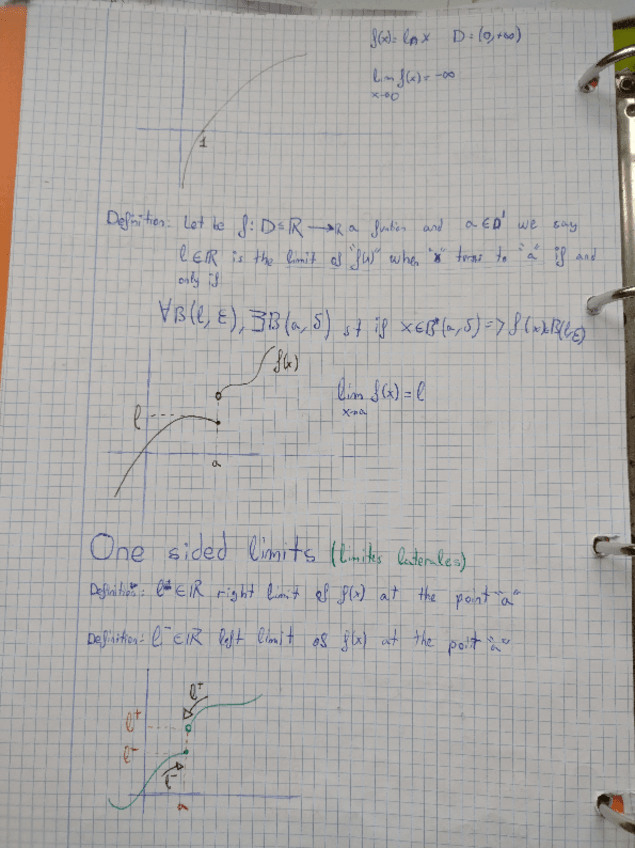 f(x) = ln x D = (0, +∞)
lim f(x) = -∞
x→0
1
Definition: Let be f: D⊆R → R a funtion and a ∈ D' we say
l ∈ R is the limit of "f(x)" when "x" tens to "a" if and
only if
∀B(l, ε), ∃B(a, δ) st if x ∈ B*(a, δ) => f(x) ∈ B(l, ε)
f(x)
l
a
lim f(x) = l
x→a
One sided limits (limites laterales)
Definition: l⁺ ∈ R right limit of f(x) at the point "a"
Definition: l⁻ ∈ R left limit of f(x) at the point "a"
l⁺
l⁺
l⁻
l⁻
a